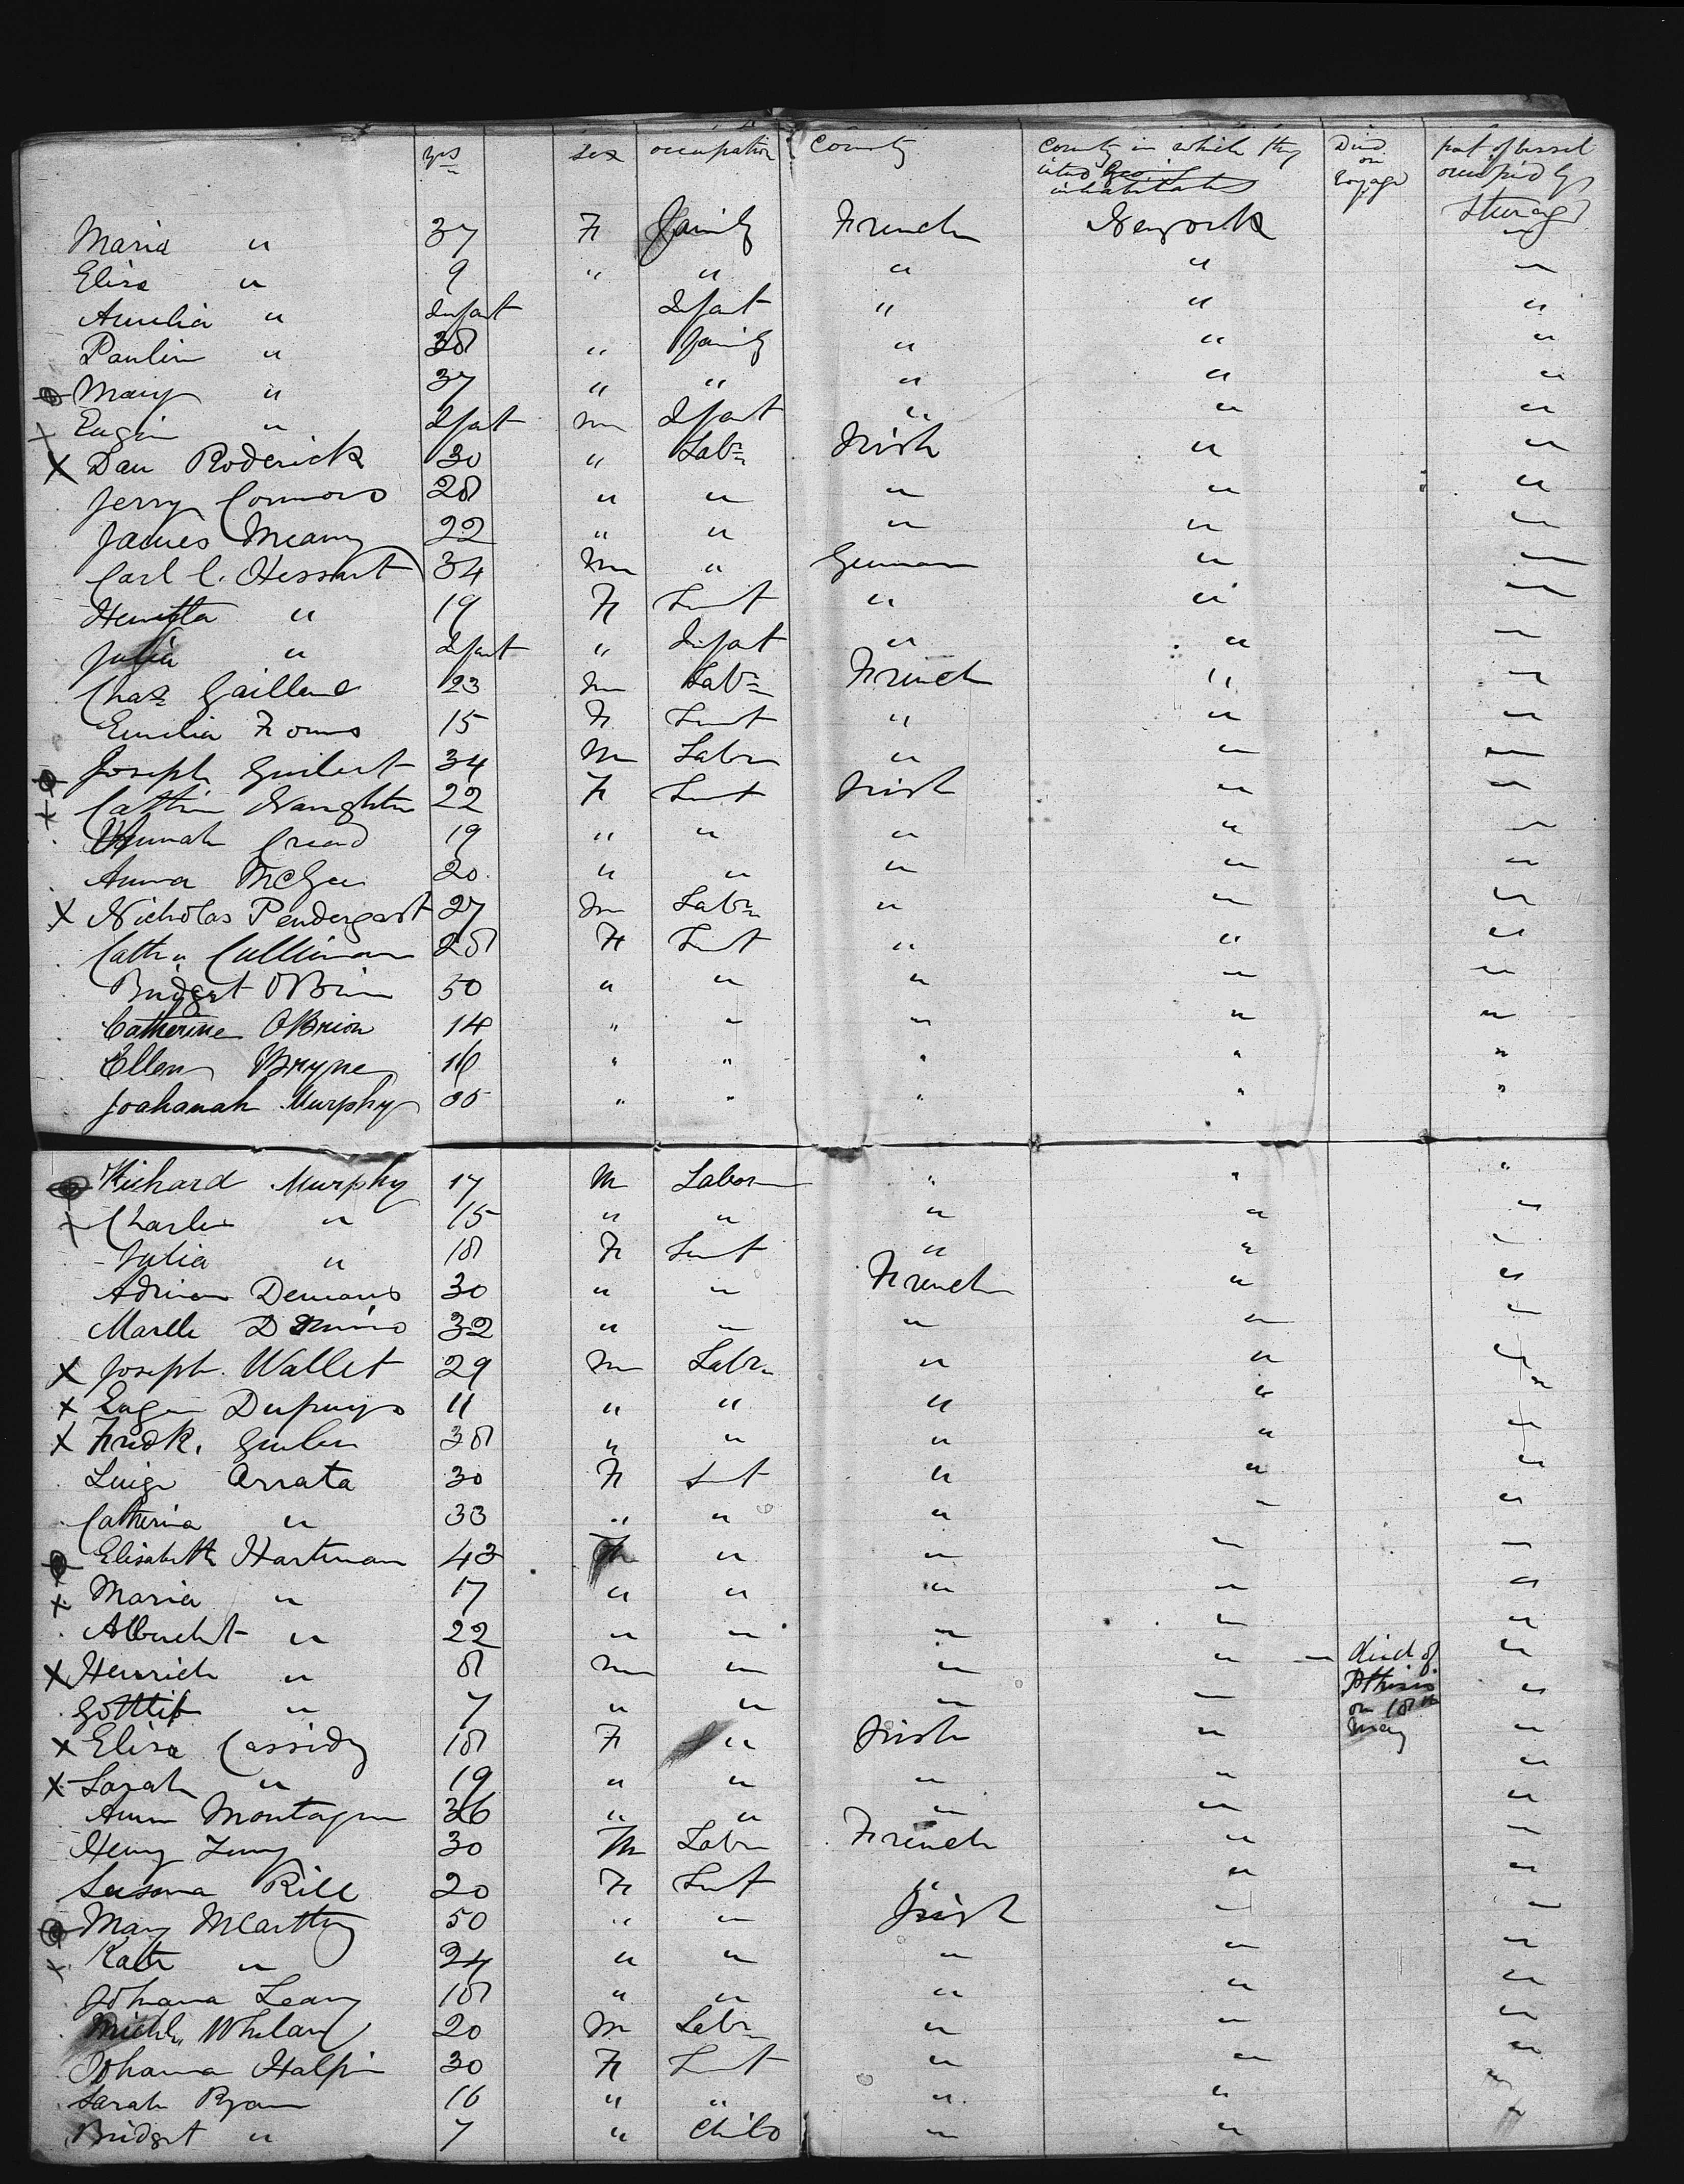 yrs sex occupation County County in which they Died on Voyage part of vessel occupied by
inhabitants
Maria " 37 F family French Newyork Sterage
Elisa " 9 " " " " "
Amelia " Infant Infant " " "
Paulin " 38 " family " " "
Mary " 37 " " " " "
Eugin " Infant m Infant " " "
X Dan Roderick 30 " Labr Irish " "
Jerry Connors 28 " " " " "
James Meany 22 " " " " "
Carl C. Hessart 34 m " German " "
Henretta " 19 F " " "
Julia " Infant " Infant " " "
Chas Gaillard 23 m Labr French " "
Emilia 15 F " " "
Joseph Guilert 34 m Labr " " "
X Cathrin Naughten 22 F Irish " "
Hannah 19 " " " " "
Anna McGee 20 " " " " "
X Nicholas Pendergast 27 m Labr " " "
Cathn Cullinan 28 F " " "
Bridget OBrin 50 " " " " "
Catherine OBrion 14 " " " " "
Ellen Bryne 16 " " " " "
Joahanah Murphy " " " " "
Richard Murphy 17 m Labor " " "
X Charles " 15 " " " " "
Julia " 18 F " " "
Demans 30 " " French " "
Marelle 32 " " " " "
X Joseph Wallet 29 m Labr " " "
X Eugen Dupuys 11 " " " " "
X Fredk. 38 " " " " "
Luige Arrata 30 F " " "
Catherina " 33 " " " " "
Elisabeth Hartman 43 F " " " "
X Maria " 17 " " " " "
Albrecht " 22 " " " " "
X Henrich " 8 m " " " — died of Pthisis on 18th May "
Gottlif " 7 " " " " "
X Elisa Cassidy 18 F " Irish " "
X Sarah " 19 " " " " "
Ann Montague 36 " " " " "
Henry 30 m Labr French " "
Susana Rill 20 F " " "
Mary McCarthy 50 " " Irish " "
X Kate " 24 " " " " "
Johana Leary 18 " " " " "
Michl. Whelan 20 m Labr " " "
Johanna Halpin 30 F " " "
Sarah Ryan 16 " " " " "
Bridget " 7 " Child " " "